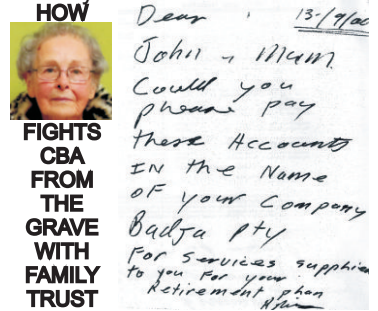 HOW
FIGHTS
CBA
FROM
THE
GRAVE
WITH
FAMILY
TRUST
Dear
John & Mum
Could you
please pay
these Accounts
IN the Name
OF your Company
Badja pty
For Services supplied
to you For your
Retirement plan